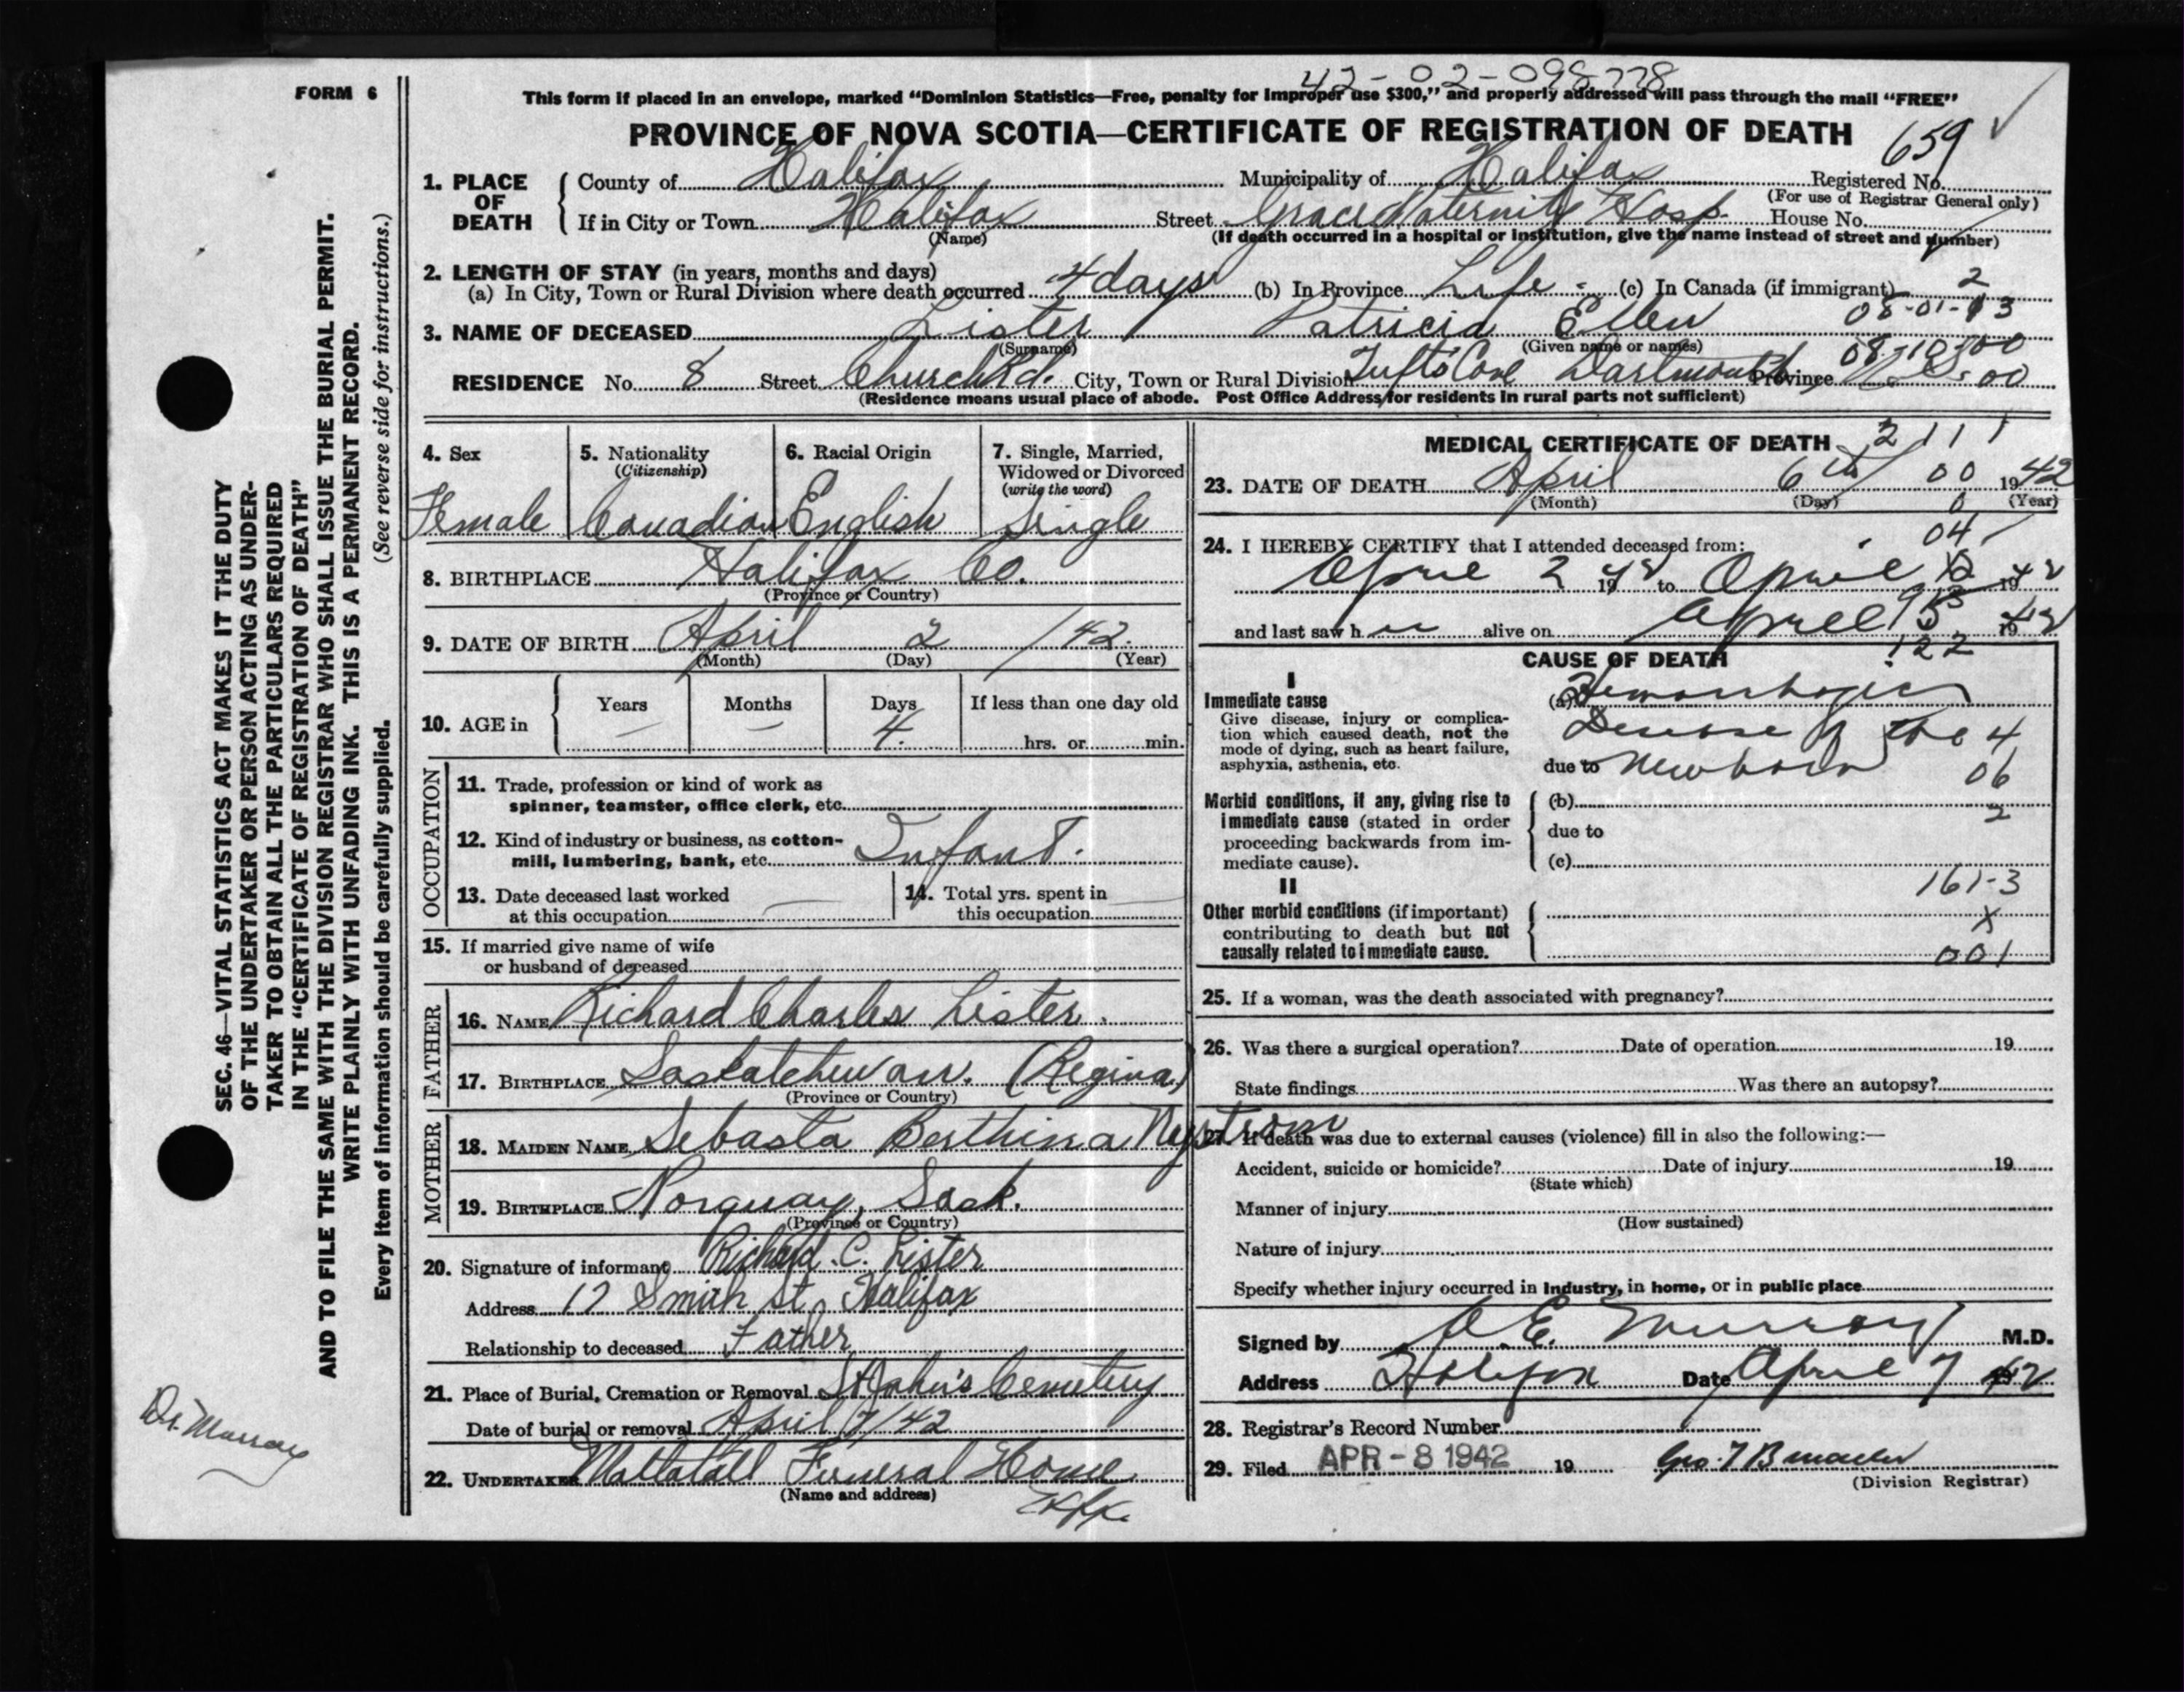 FORM 6
42-02-098778
This form if placed in an envelope, marked "Dominion Statistics—Free, penalty for improper use $300," and properly addressed will pass through the mail "FREE"
PROVINCE OF NOVA SCOTIA—CERTIFICATE OF REGISTRATION OF DEATH
659
1. PLACE OF DEATH { County of Halifax Municipality of Halifax Registered No.
(For use of Registrar General only)
If in City or Town Halifax Street Grace Maternity Hosp. House No.
(Name) (If death occurred in a hospital or institution, give the name instead of street and number)
2. LENGTH OF STAY (in years, months and days)
(a) In City, Town or Rural Division where death occurred 4 days (b) In Province Life - (c) In Canada (if immigrant) 2
08-01-13
3. NAME OF DECEASED Lister Patricia Ellen
(Surname) (Given name or names)
08-10-00
RESIDENCE No. 8 Street Church Rd. City, Town or Rural Division Tufts Cove Dartmouth Province N.S. 00
(Residence means usual place of abode. Post Office Address for residents in rural parts not sufficient)
4. Sex
Female
5. Nationality
(Citizenship)
Canadian
6. Racial Origin
English
7. Single, Married,
Widowed or Divorced
(write the word)
Single
8. BIRTHPLACE Halifax Co.
(Province or Country)
9. DATE OF BIRTH April 2 / 42.
(Month) (Day) (Year)
10. AGE in { Years Months Days If less than one day old
— — 4. hrs. or min.
OCCUPATION
11. Trade, profession or kind of work as
spinner, teamster, office clerk, etc.
12. Kind of industry or business, as cotton-
mill, lumbering, bank, etc. Infant.
13. Date deceased last worked
at this occupation —
14. Total yrs. spent in
this occupation —
15. If married give name of wife
or husband of deceased
FATHER
16. NAME Richard Charles Lister.
17. BIRTHPLACE Saskatchewan. (Regina)
(Province or Country)
MOTHER
18. MAIDEN NAME Sebasta Berthina Nystrom
19. BIRTHPLACE Norquay, Sask.
(Province or Country)
20. Signature of informant Richard. C. Lister
Address 17 Smith St, Halifax
Relationship to deceased Father
21. Place of Burial, Cremation or Removal St John's Cemetery
Date of burial or removal April 7/42
22. UNDERTAKER Mattatall Funeral Home
(Name and address) Hfx.
MEDICAL CERTIFICATE OF DEATH
2111
23. DATE OF DEATH April 6th 00 1942
(Month) (Day) (Year)
0
04
24. I HEREBY CERTIFY that I attended deceased from:
April 2 1942 to April 1942
and last saw her alive on April 5 1942
122
CAUSE OF DEATH
I
Immediate cause
Give disease, injury or complica-
tion which caused death, not the
mode of dying, such as heart failure,
asphyxia, asthenia, etc.
(a) Hemorrhagic
Disease of the 4
due to Newborn 06
Morbid conditions, if any, giving rise to
immediate cause (stated in order
proceeding backwards from im-
mediate cause).
(b)
2
due to
(c)
161-3
II
Other morbid conditions (if important)
contributing to death but not
causally related to immediate cause.
X
001
25. If a woman, was the death associated with pregnancy?
26. Was there a surgical operation? Date of operation 19
State findings Was there an autopsy?
27. If death was due to external causes (violence) fill in also the following:—
Accident, suicide or homicide? Date of injury 19
(State which)
Manner of injury
(How sustained)
Nature of injury
Specify whether injury occurred in industry, in home, or in public place
Signed by Murray M.D.
Address Halifax Date April 7 1942
28. Registrar's Record Number
29. Filed APR - 8 1942 19
(Division Registrar)
SEC. 46—VITAL STATISTICS ACT MAKES IT THE DUTY
OF THE UNDERTAKER OR PERSON ACTING AS UNDER-
TAKER TO OBTAIN ALL THE PARTICULARS REQUIRED
IN THE "CERTIFICATE OF REGISTRATION OF DEATH"
AND TO FILE THE SAME WITH THE DIVISION REGISTRAR WHO SHALL ISSUE THE BURIAL PERMIT.
WRITE PLAINLY WITH UNFADING INK. THIS IS A PERMANENT RECORD.
Every item of information should be carefully supplied. (See reverse side for instructions.)
Dr. Murray